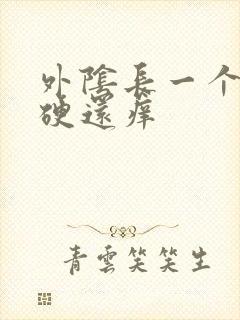 外陰長一个
硬還痒
青雲笑笑生